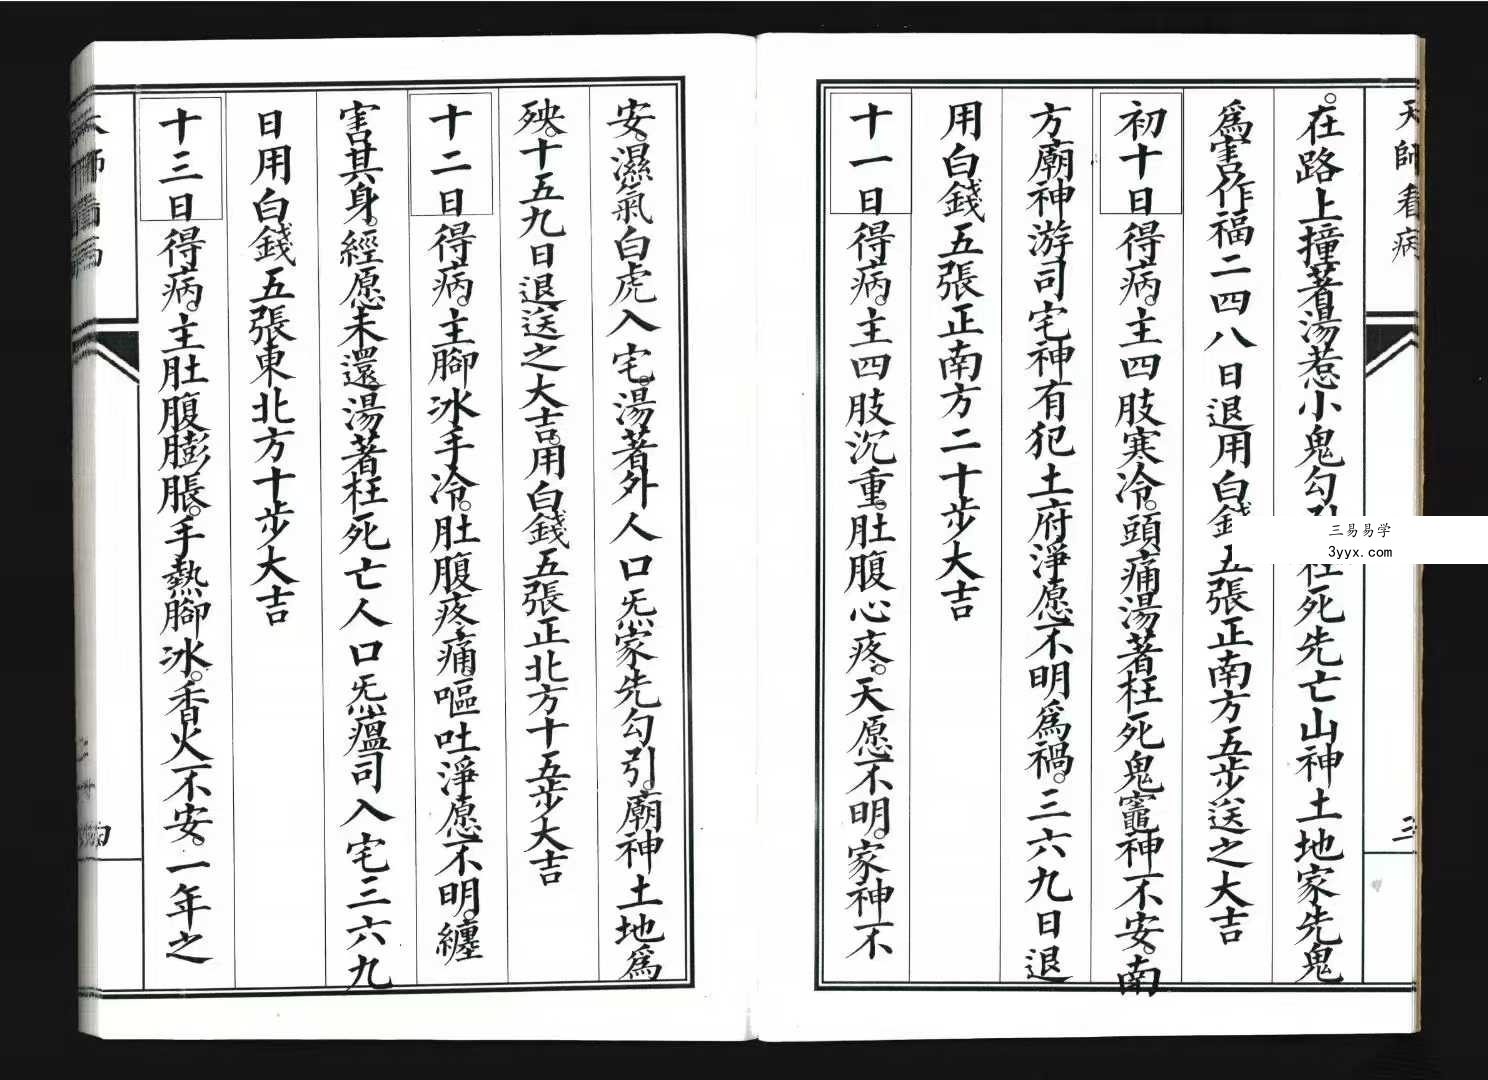 天師看病
三
。在路上撞著湯惹小鬼勾引枉死先亡山神土地家先鬼
爲害作福二四八日退用白錢五張正南方五步送之大吉
初十日得病。主四肢寒冷。頭痛湯著枉死鬼竈神不安。南
方廟神游司宅神有犯土府淨愿不明爲禍。三六九日退
用白錢五張正南方二十步大吉
十一日得病。主四肢沉重。肚腹心疼。天愿不明。家神不
安。濕氣白虎入宅。湯著外人口炁家先勾引。廟神土地爲
殃。十五九日退送之大吉。用白錢五張正北方十五步大吉
十二日得病。主腳冰手冷。肚腹疼痛。嘔吐淨愿不明。纏
害其身。經愿未還湯著枉死亡人口炁瘟司入宅三六九
日用白錢五張東北方十步大吉
十三日得病。主肚腹膨脹。手熱腳冰。香火不安。一年之
三易易学
3yyx.com